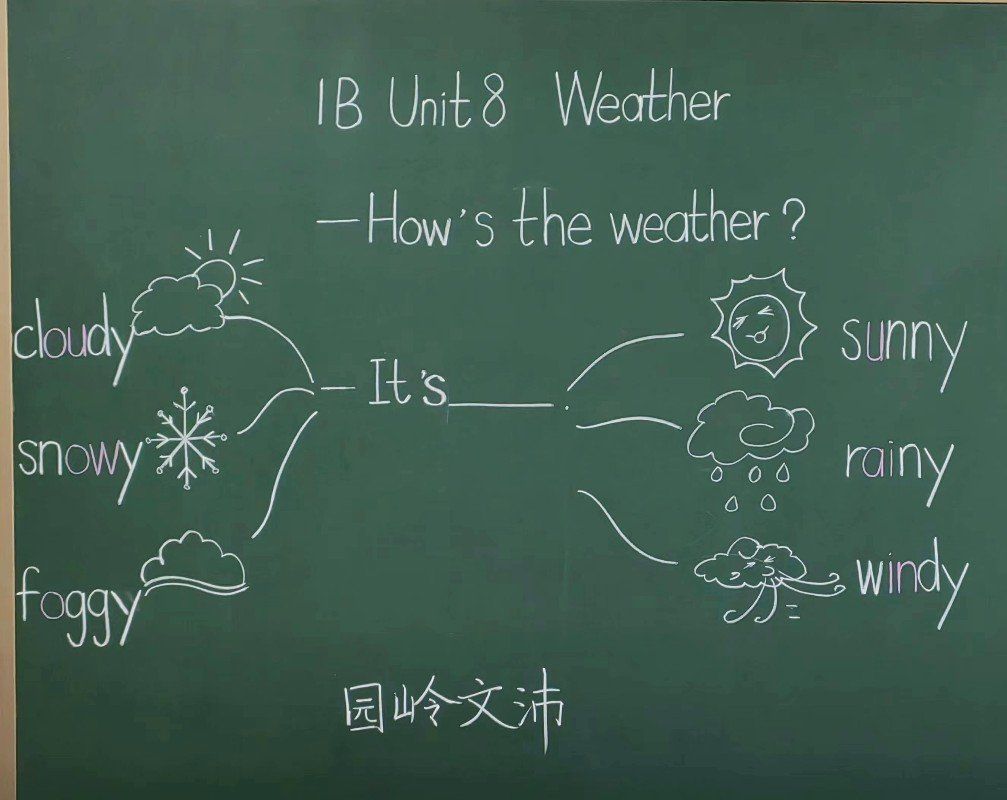 1B Unit 8 Weather
—How's the weather?
cloudy
sunny
— It's ____.
snowy
rainy
foggy
windy
园岭文沛